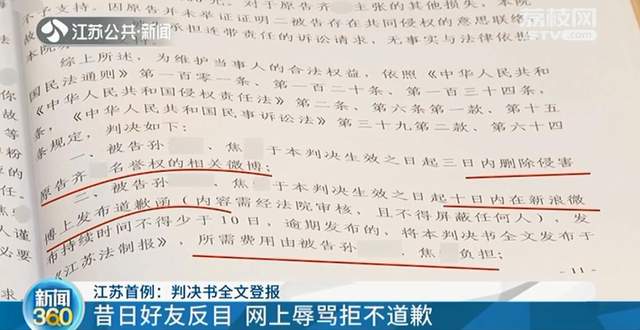 江苏公共·新闻
荔枝网
JSTV.COM
不予支持。因原告并未举证证明二被告存在共同侵权的意思联络
担连带责任的诉讼请求，无事实与法律依
综上所述，为维护当事人的合法权益，依照《中华人民共和
国民法通则》第一百零一条、第一百二十条、第一百三十四条，
《中华人民共和国侵权责任法》第二条、第六条第一款、第十五
条，《中华人民共和国民事诉讼法》第三十九第二款、第六十四
条规定，判决如下：
一、被告孙 、焦 于本判决生效之日起三日内删除侵害
原告齐 名誉权的相关微博；
二、被告孙 、焦 于本判决生效之日起十日内在新浪微
博上发布道歉函（内容需经法院审核，且不得屏蔽任何人），发
布持续时间不得少于10日，逾期发布的，将本判决书全文发布于
《江苏法制报》，所需费用由被告孙 、焦 负担；
11
新闻360
江苏首例：判决书全文登报
昔日好友反目 网上辱骂拒不道歉